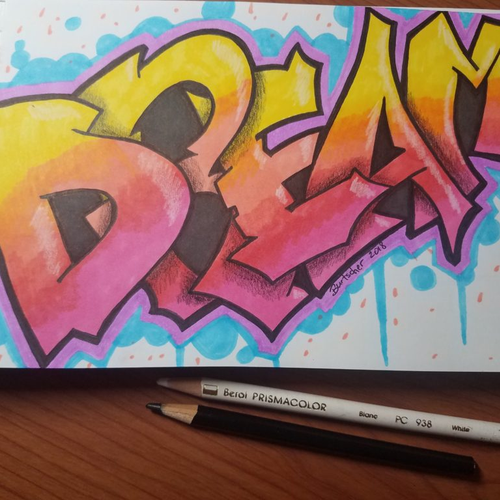 DREAM
2018
Berol PRISMACOLOR Blanc PC 938 White